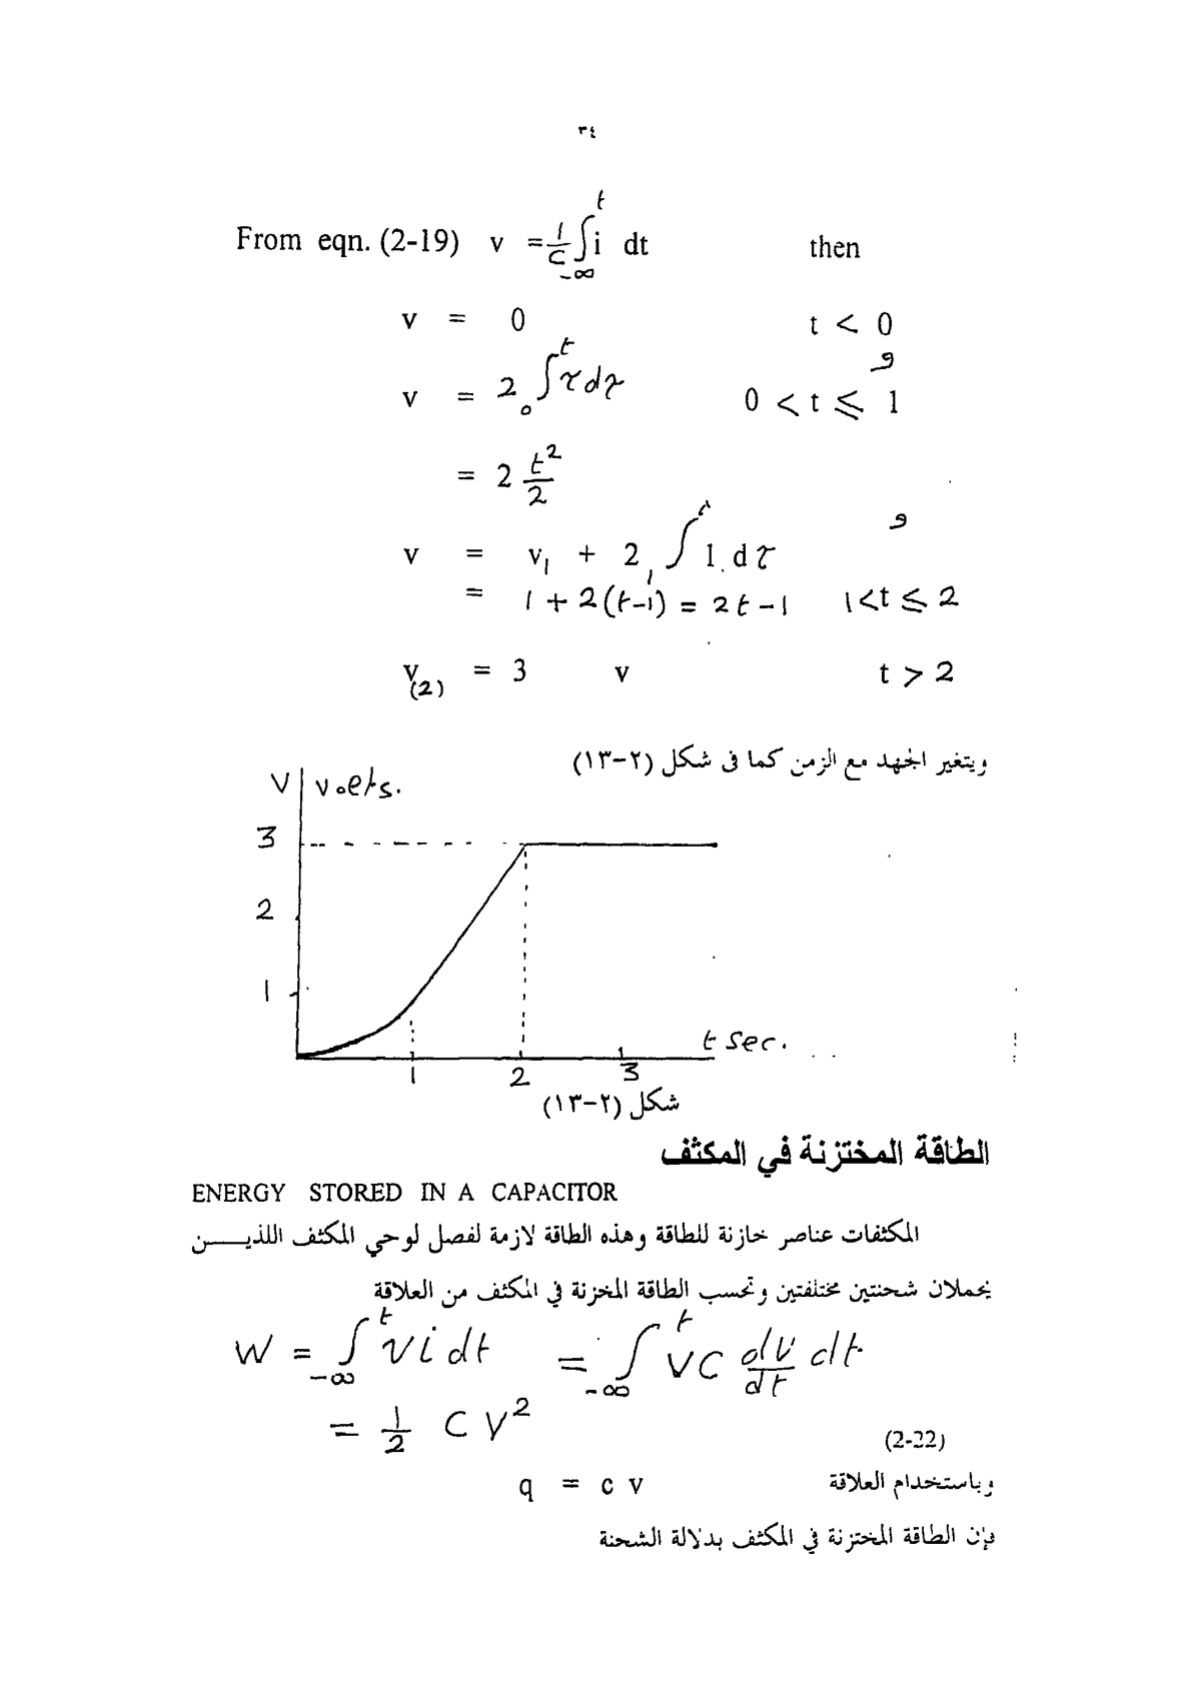 ٣٤
From eqn. (2-19) v = 1/C ∫_{-∞}^{t} i dt then
v = 0 t < 0
و
v = 2 ∫_{0}^{t} τ dτ 0 < t ⩽ 1
= 2 t²/2
و
v = v₁ + 2 ∫_{1}^{t} 1. dτ
= 1 + 2(t-1) = 2t-1 1<t ⩽ 2
v(2) = 3 v t > 2
ويتغير الجهد مع الزمن كما فى شكل (٢-١٣)
V volts.
3
2
1
t sec.
1 2 3
شكل (٢-١٣)
الطاقة المختزنة في المكثف
ENERGY STORED IN A CAPACITOR
المكثفات عناصر خازنة للطاقة وهذه الطاقة لازمة لفصل لوحي المكثف اللذيـــن
يحملان شحنتين مختلفتين وتحسب الطاقة المخزنة في المكثف من العلاقة
W = ∫_{-∞}^{t} v i dt = ∫_{-∞}^{t} v C dv/dt dt
= 1/2 C V²
(2-22)
وباستخدام العلاقة q = c v
فإن الطاقة المختزنة في المكثف بدلالة الشحنة